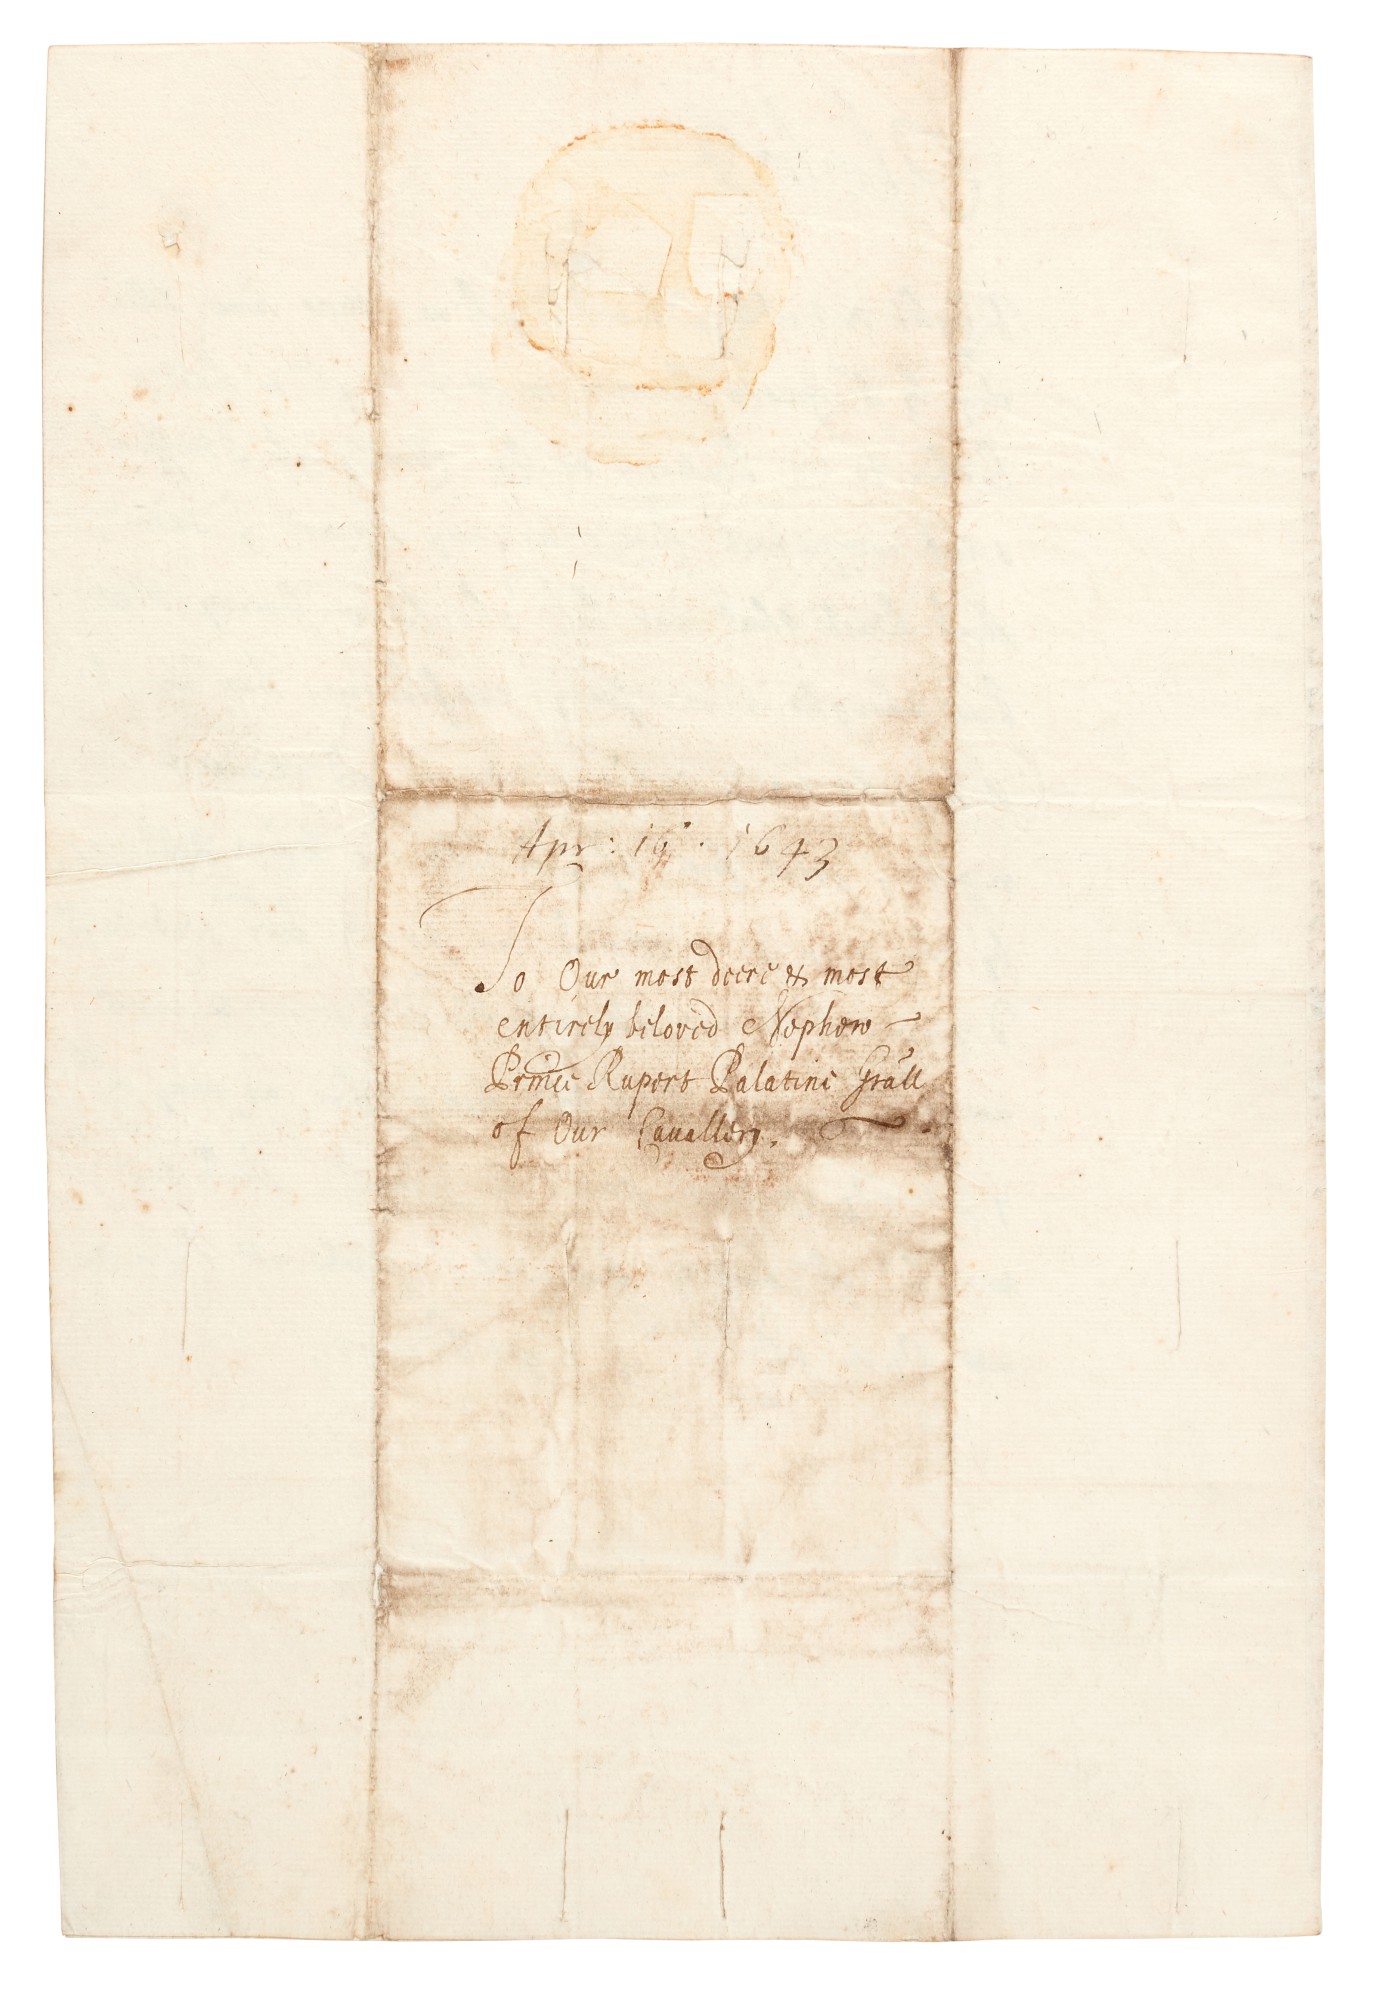 Apr: 16. 1643
To Our most deere & most
entirely beloved Nephew
Prince Rupert Palatine Gr̃all
of Our Cavallery.